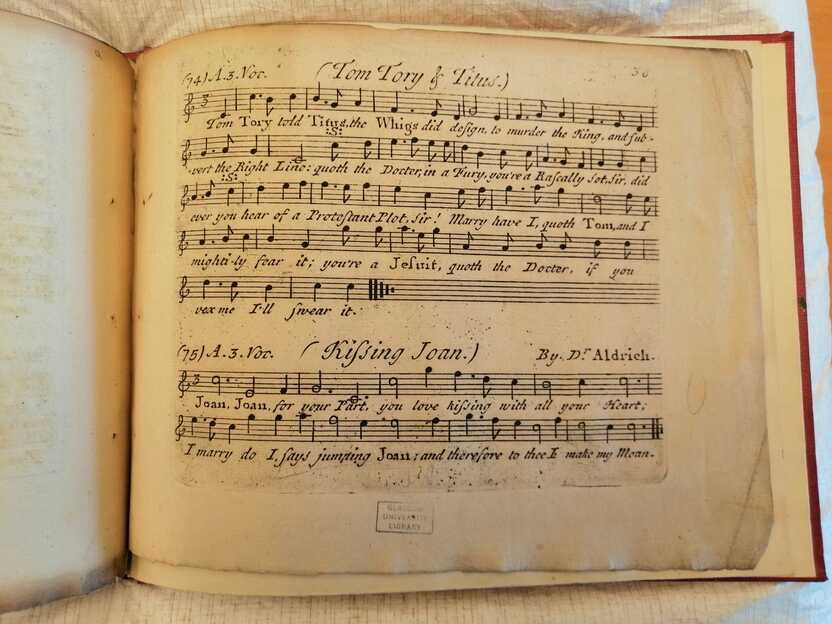 (74) A. 3. Voc. (Tom Tory & Titus.) 38
Tom Tory told Titus, the Whigs did design, to murder the King, and sub-
:S:
vert the Right Line: quoth the Doctor, in a Fury, you're a Rascally Sot, Sir, did
:S:
ever you hear of a Protestant Plot, Sir! Marry have I, quoth Tom, and I
mighti-ly fear it; you're a Jesuit, quoth the Doctor, if you
vex me I'll swear it.
(75) A. 3. Voc. (Kissing Joan.) By. Dr Aldrich.
Joan, Joan, for your Part, you love kissing with all your Heart;
I marry do I, says jumping Joan; and therefore to thee I make my Moan.
GLASGOW
UNIVERSITY
LIBRARY